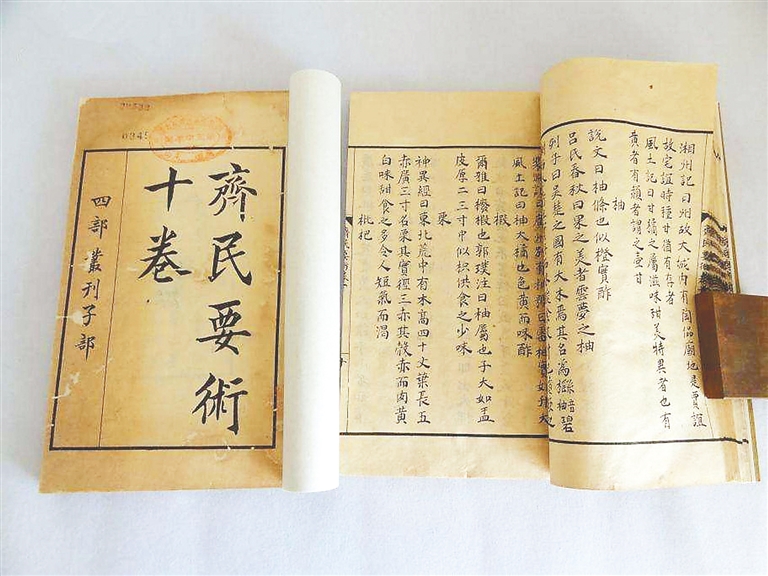 齊民要術
十卷
四部叢刊子部
湘州記曰州故大城內有陶侃廟地是賈誼
故宅誼時種甘猶有存者
風土記曰甘橘之屬滋味甜美特異者也有
黃者有頳者謂之壺甘
柚
說文曰柚條也似橙實酢
呂氏春秋曰果之美者雲夢之柚
列子曰吳楚之國有大木焉其名為櫾音柚碧
風土記曰柚大橘也色黃而味酢
椵
爾雅曰櫠椵也郭璞注曰柚屬也子大如盂
皮厚二三寸中似枳供食之少味
栗
神異經曰東北荒中有木高四十丈葉長五
赤廣三寸名栗其實徑三赤其殼赤而肉黃
白味甜食之多令人短氣而渴
枇杷